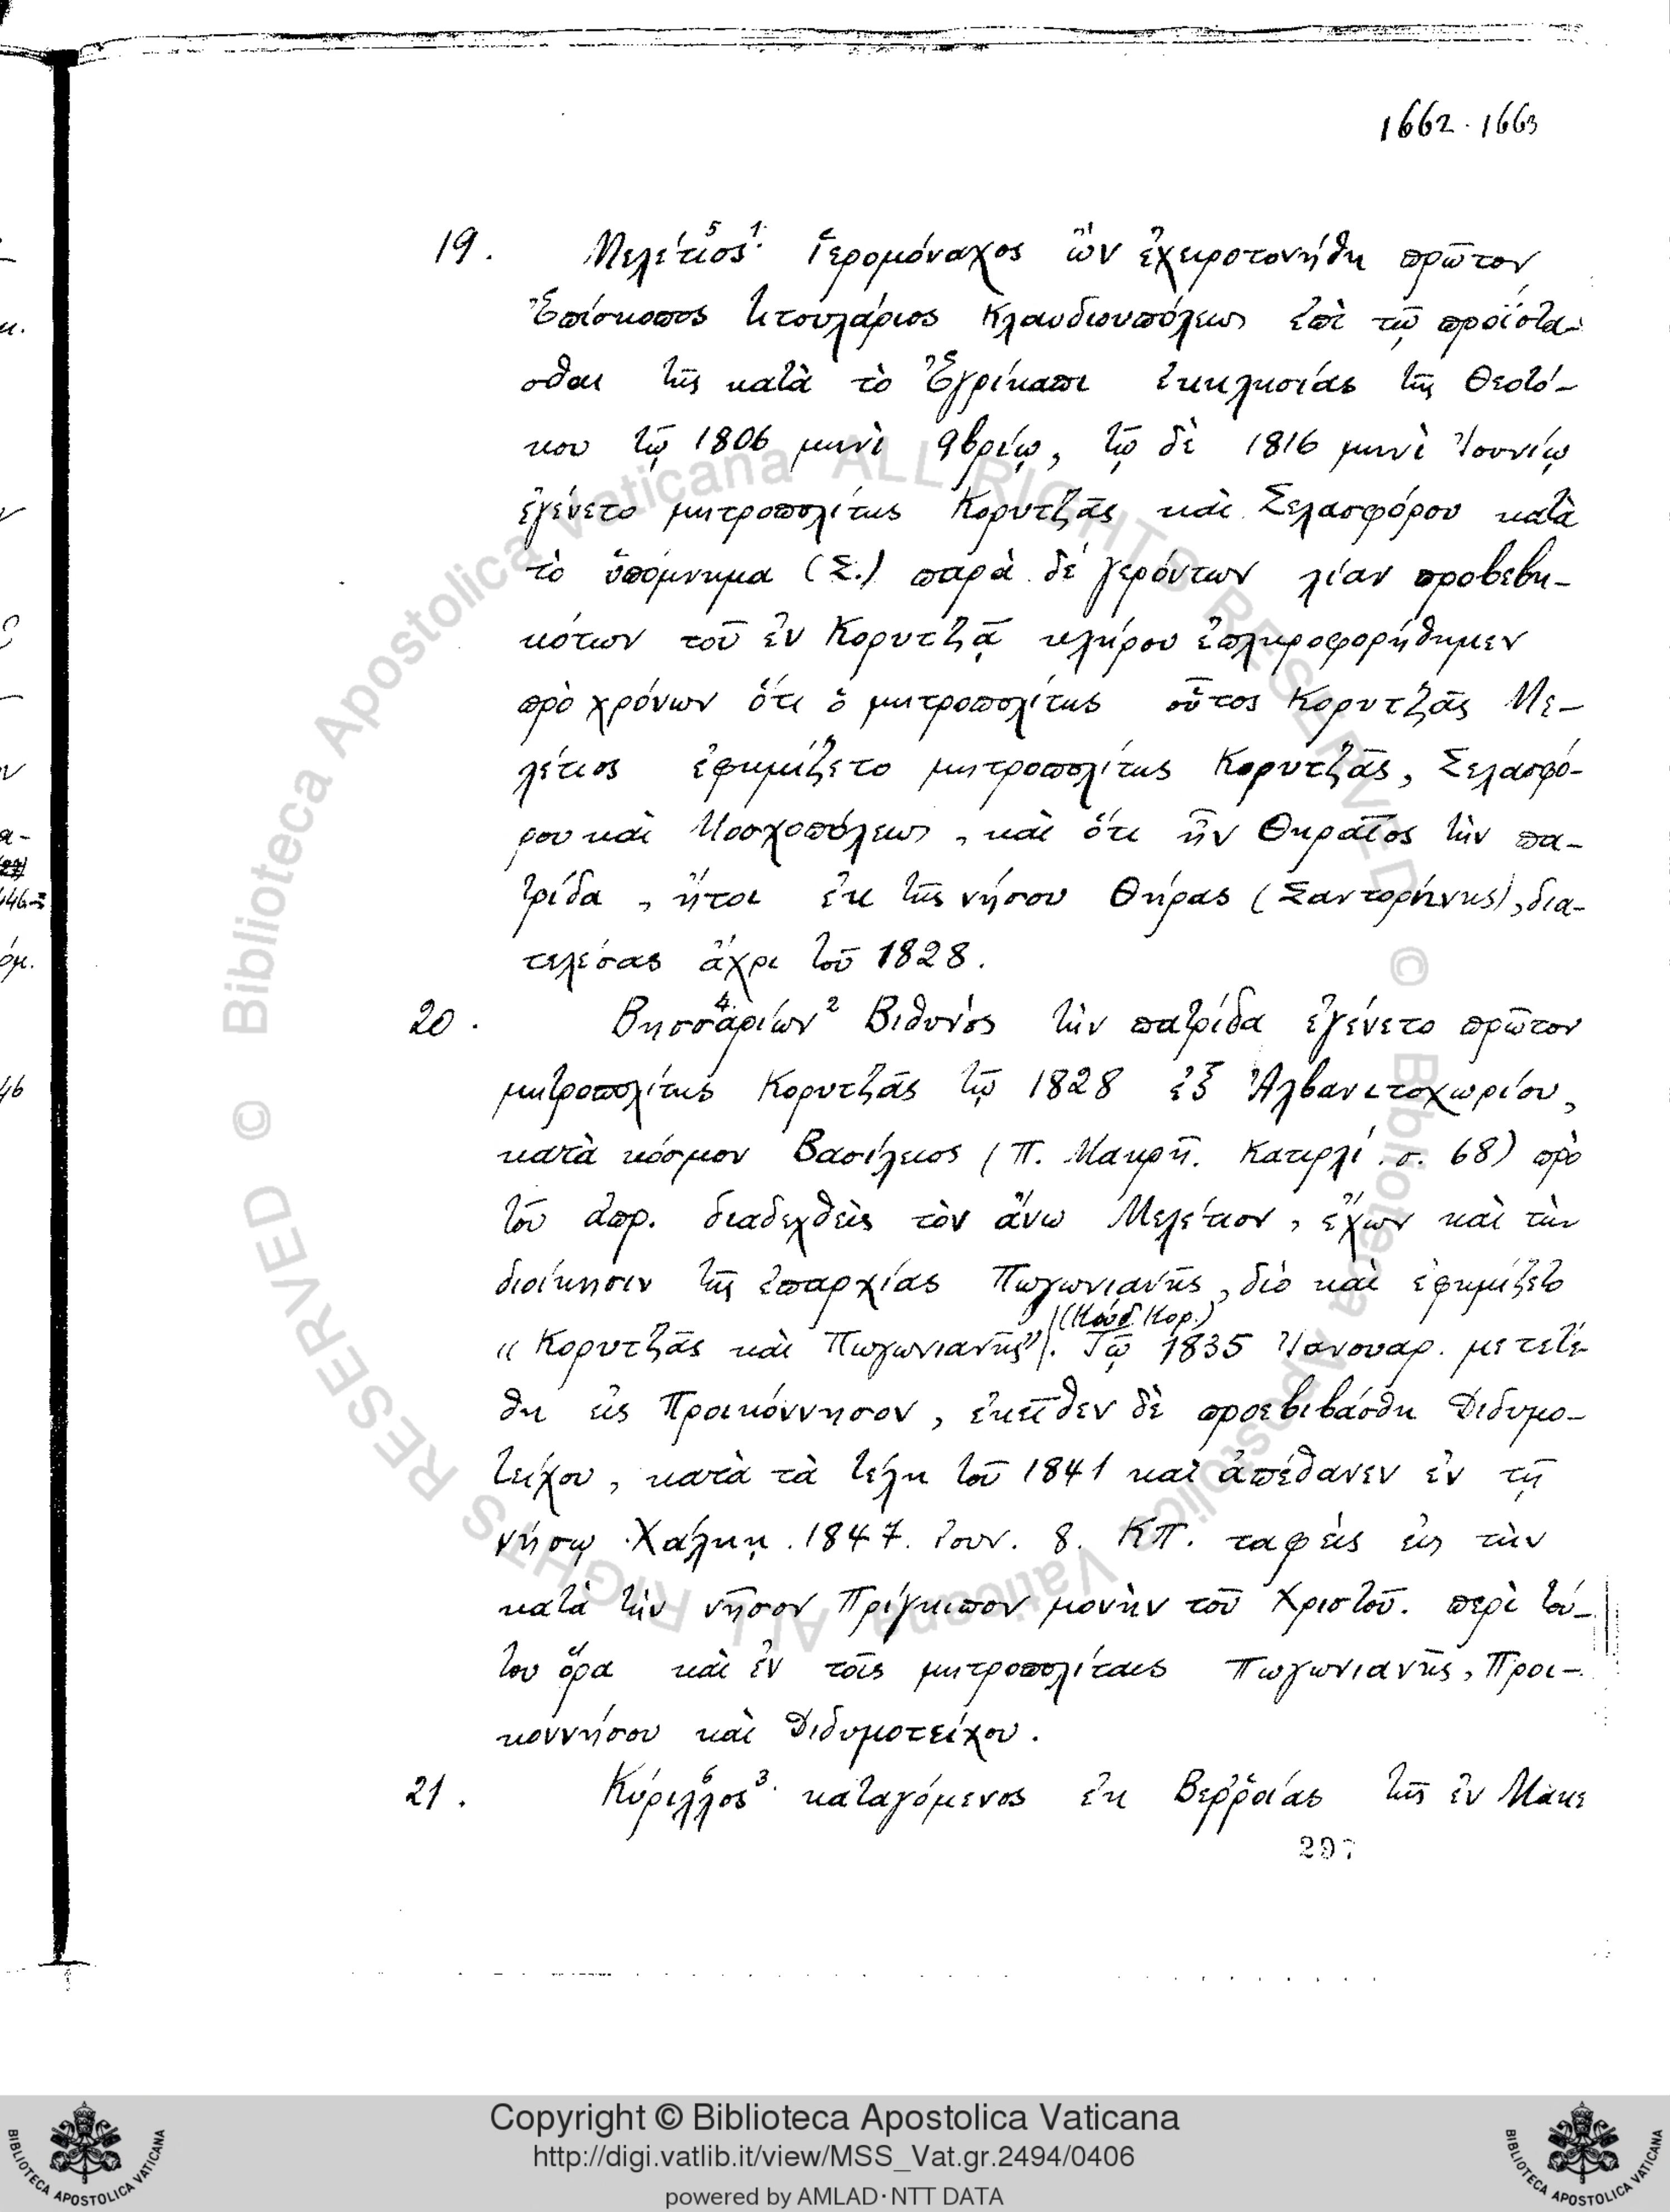 1662 · 1663
19. Μελέτιος Ἱερομόναχος ὢν ἐχειροτονήθη πρῶτον
Ἐπίσκοπος τιτουλάριος Κλαυδιουπόλεως ἐπὶ τῷ προΐστα-
σθαι τῆς κατὰ τὸ Ἐγρίκαπι ἐκκλησίας τῆς Θεοτό-
κου τῷ 1806 μηνὶ 9βρίῳ, τῷ δὲ 1816 μηνὶ Ἰουνίῳ
ἐγένετο μητροπολίτης Κορυτζᾶς καὶ Σελασφόρου κατὰ
τὸ ὑπόμνημα (Σ.) παρὰ δὲ γερόντων λίαν προβεβη-
κότων τοῦ ἐν Κορυτζᾷ κλήρου ἐπληροφορήθημεν
πρὸ χρόνων ὅτι ὁ μητροπολίτης οὗτος Κορυτζᾶς Με-
λέτιος ἐφημίζετο μητροπολίτης Κορυτζᾶς, Σελασφό-
ρου καὶ Μοσχοπόλεως, καὶ ὅτι ἦν Θηραῖος τὴν πα-
τρίδα, ἤτοι ἐκ τῆς νήσου Θήρας (Σαντορήνης), δια-
τελέσας ἄχρι τοῦ 1828.
20. Βησσαρίων Βιθυνὸς τὴν πατρίδα ἐγένετο πρῶτον
μητροπολίτης Κορυτζᾶς τῷ 1828 ἐξ Ἀλβανιτοχωρίου,
κατὰ κόσμον Βασίλειος (Π. Μακρῆ. Κατιρλί. σ. 68) πρὸ
τοῦ ἀπρ. διαδεχθεὶς τὸν ἄνω Μελέτιον, ἔχων καὶ τὴν
διοίκησιν τῆς ἐπαρχίας Πωγωνιανῆς, διὸ καὶ ἐφημίζετο
(Κώδ. Κορ.)
« Κορυτζᾶς καὶ Πωγωνιανῆς». Τῷ 1835 Ἰανουαρ. μετετέ-
θη εἰς Προικόννησον, ἐκεῖθεν δὲ προεβιβάσθη Διδυμο-
τείχου, κατὰ τὰ τέλη τοῦ 1841 καὶ ἀπέθανεν ἐν τῇ
νήσῳ Χάλκῃ. 1847. Ἰουν. 8. ΚΠ. ταφεὶς εἰς τὴν
κατὰ τὴν νῆσον Πρίγκιπον μονὴν τοῦ Χριστοῦ. περὶ τού-
του ὅρα καὶ ἐν τοῖς μητροπολίταις Πωγωνιανῆς, Προι-
κοννήσου καὶ Διδυμοτείχου.
21. Κύριλλος καταγόμενος ἐκ Βερροίας τῆς ἐν Μακε
297
Copyright © Biblioteca Apostolica Vaticana
http://digi.vatlib.it/view/MSS_Vat.gr.2494/0406
powered by AMLAD·NTT DATA
BIBLIOTECA APOSTOLICA VATICANA
BIBLIOTECA APOSTOLICA VATICANA
© Biblioteca Apostolica Vaticana ALL RIGHTS RESERVED
© Biblioteca Apostolica Vaticana ALL RIGHTS RESERVED